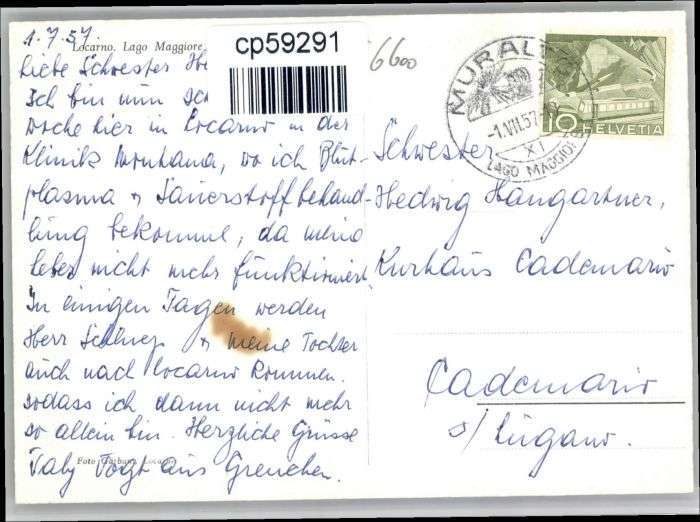 1.7.57.
Locarno. Lago Maggiore.
cp59291
6600
Liebe Schwester He
Ich bin nun
Woche hier in Locarno in der
Klinik Montana, wo ich Blut-
plasma & Sauerstoffbehand-
lung bekomme, da meine
Leber nicht mehr funktioniert.
In einigen Tagen werden
Herr & meine Tochter
auch nach Locarno kommen.
sodass ich dann nicht mehr
so allein bin. Herzliche Grüsse
Vogt aus Grenchen.
Foto Locarno
MURALTO
-1.VII.57
XI
LAGO MAGGIORE
10 HELVETIA
Schwester
Hedwig Hangartner,
Kurhaus Cademario
Cademario
s/Lugano.